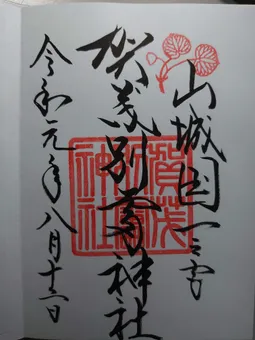 山城国一之宮
賀茂別雷神社
令和元年八月十一日
賀茂
別雷
神社